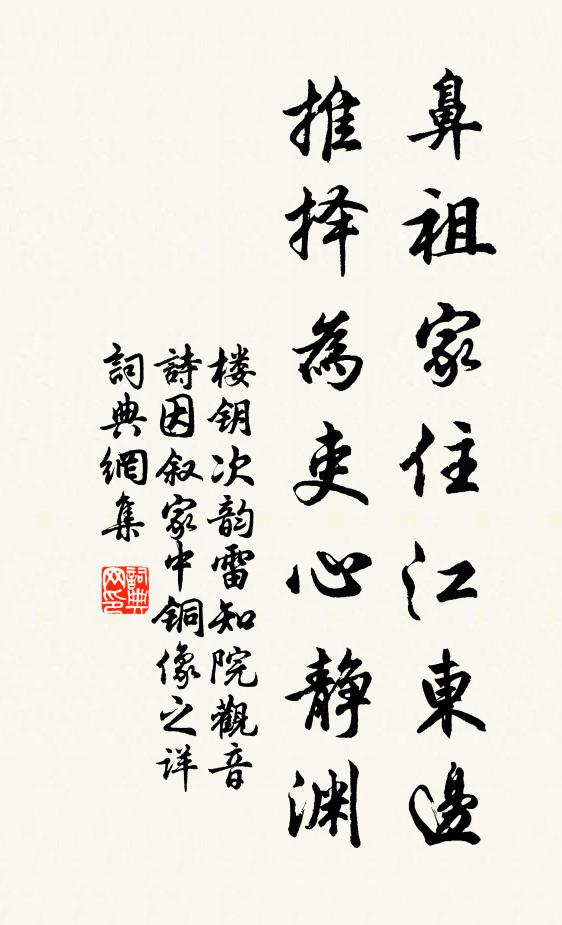 鼻祖家住江東邊
推择為吏心静渊
楼钥次韵雷知院觀音
詩因叙家中銅像之详
詞典網集
詞典网印